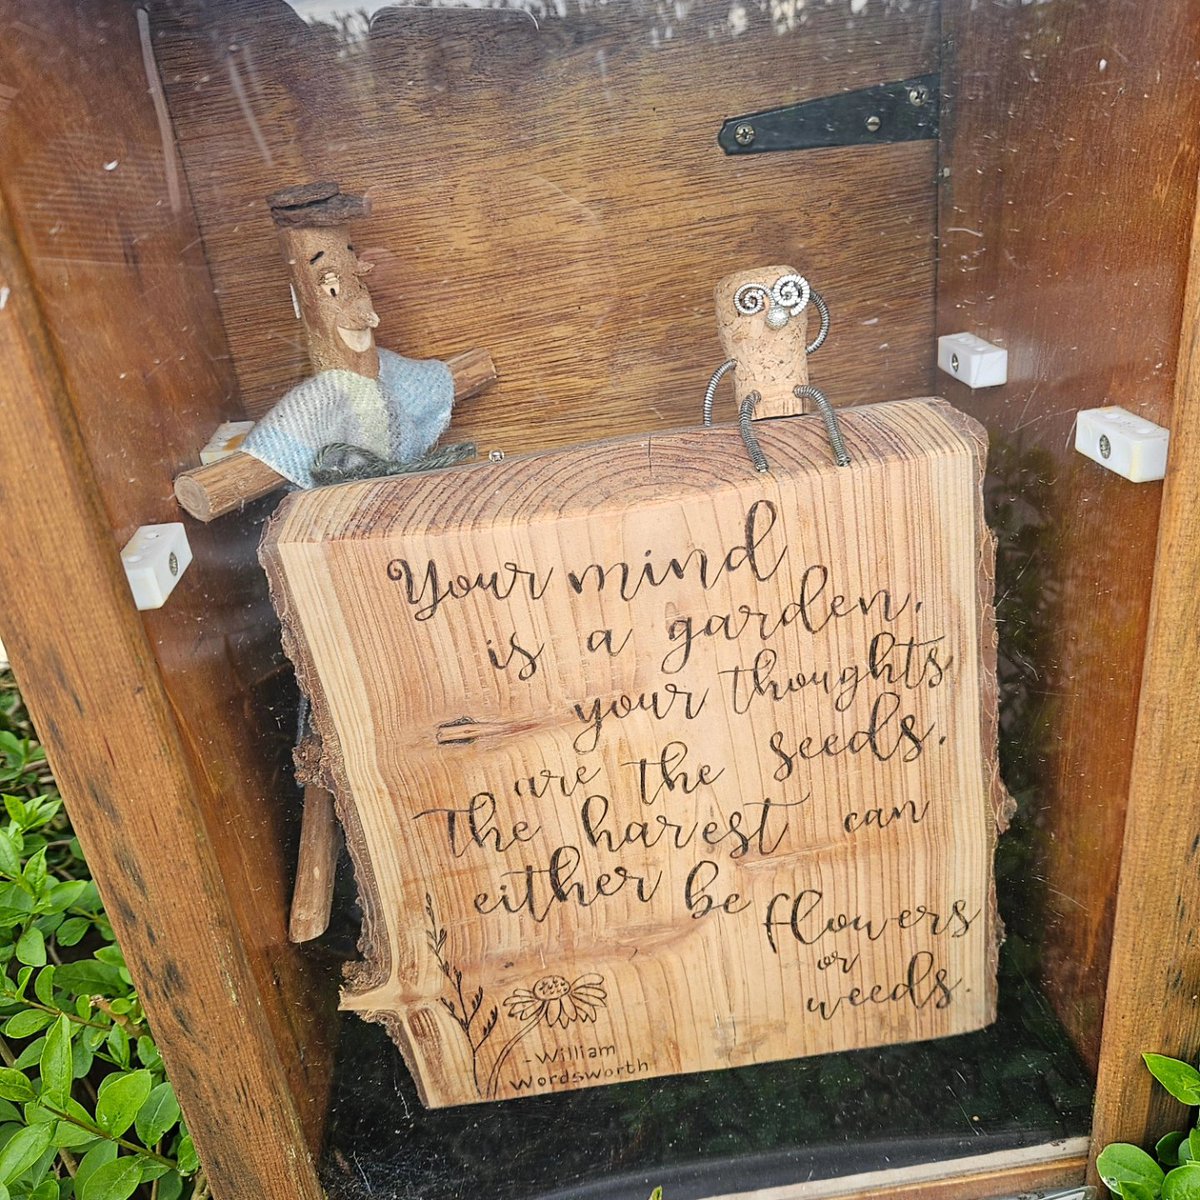 Your mind
is a garden,
your thoughts
are the seeds.
The harest can
either be flowers
or
weeds.
-William
Wordsworth